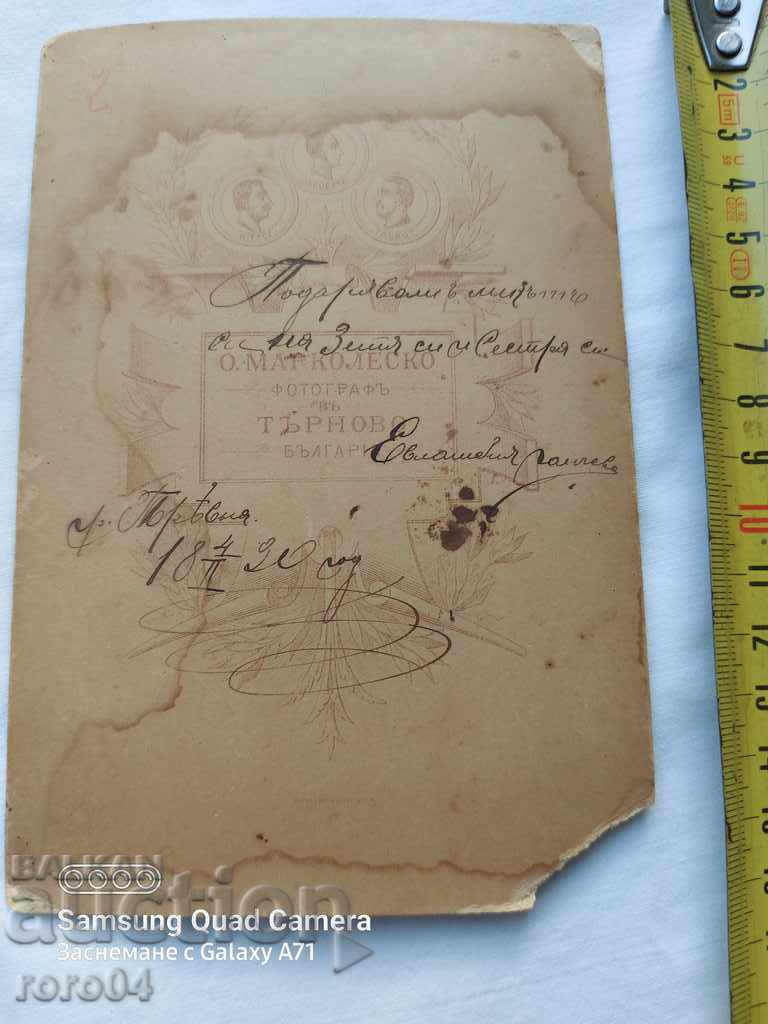 2
Подарявамъ ликътъ
си на Зетя си и Сестра си
О. МАРКОЛЕСКО
ФОТОГРАФЪ
ВЪ
ТЪРНОВО
БЪЛГАРИ
гр. Трѣвна.
18 4/II 90 год
BALKAN
auction
Samsung Quad Camera
Заснемане с Galaxy A71
roro04
2 3 4 5 6 7 8 9 10 11 12 13 14 15
5m